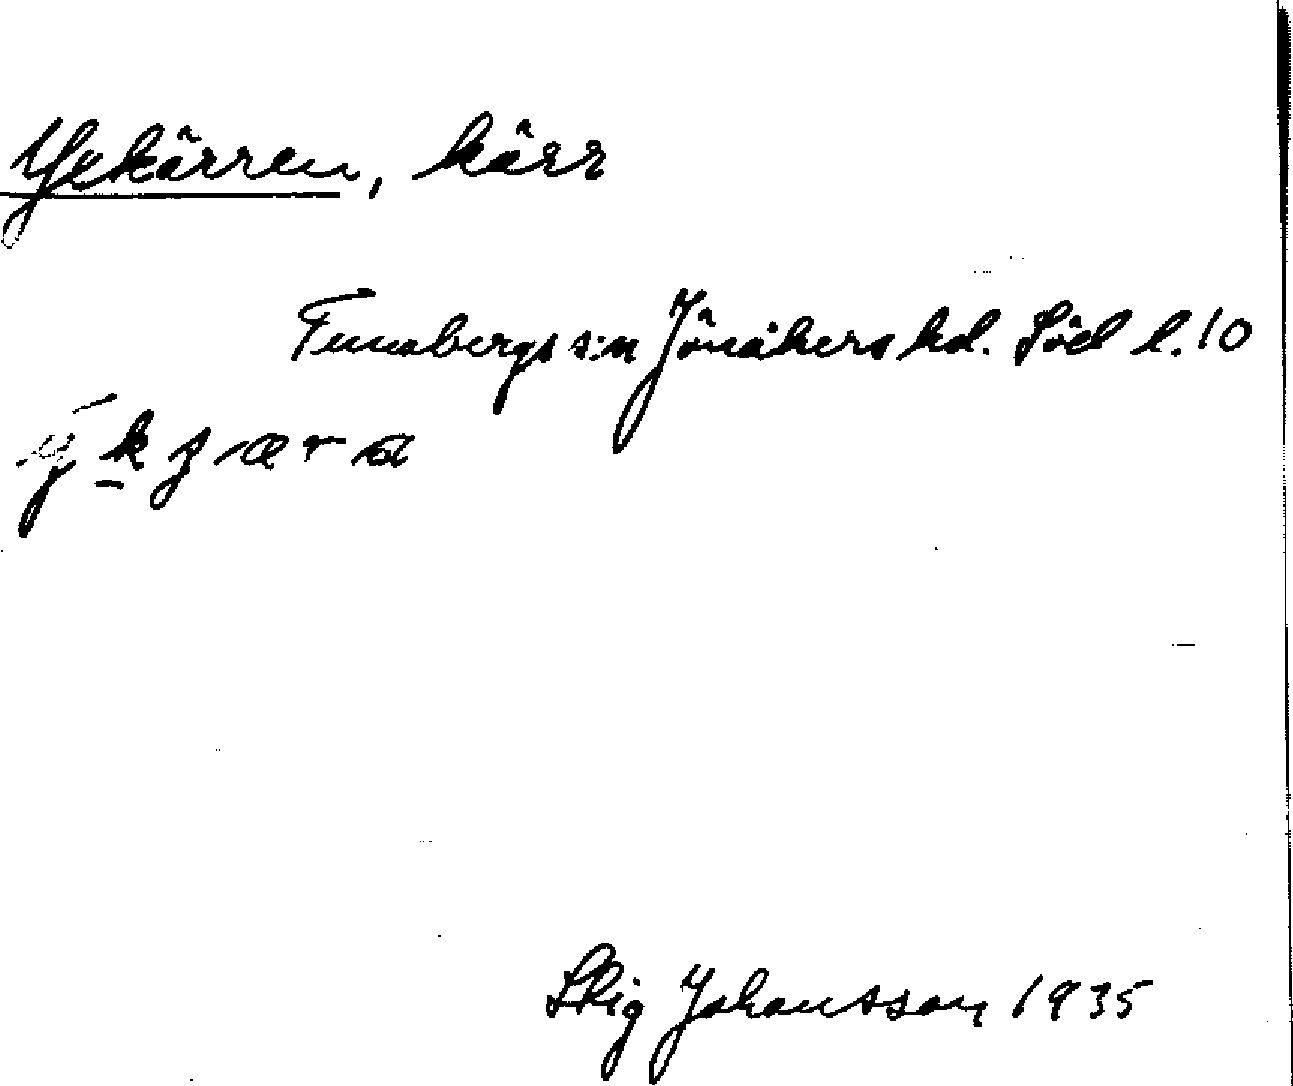 Yekärren, kärr
Tunabergs s:n Jönåkers hd. Söd l. 10
Stig Johansson 1935